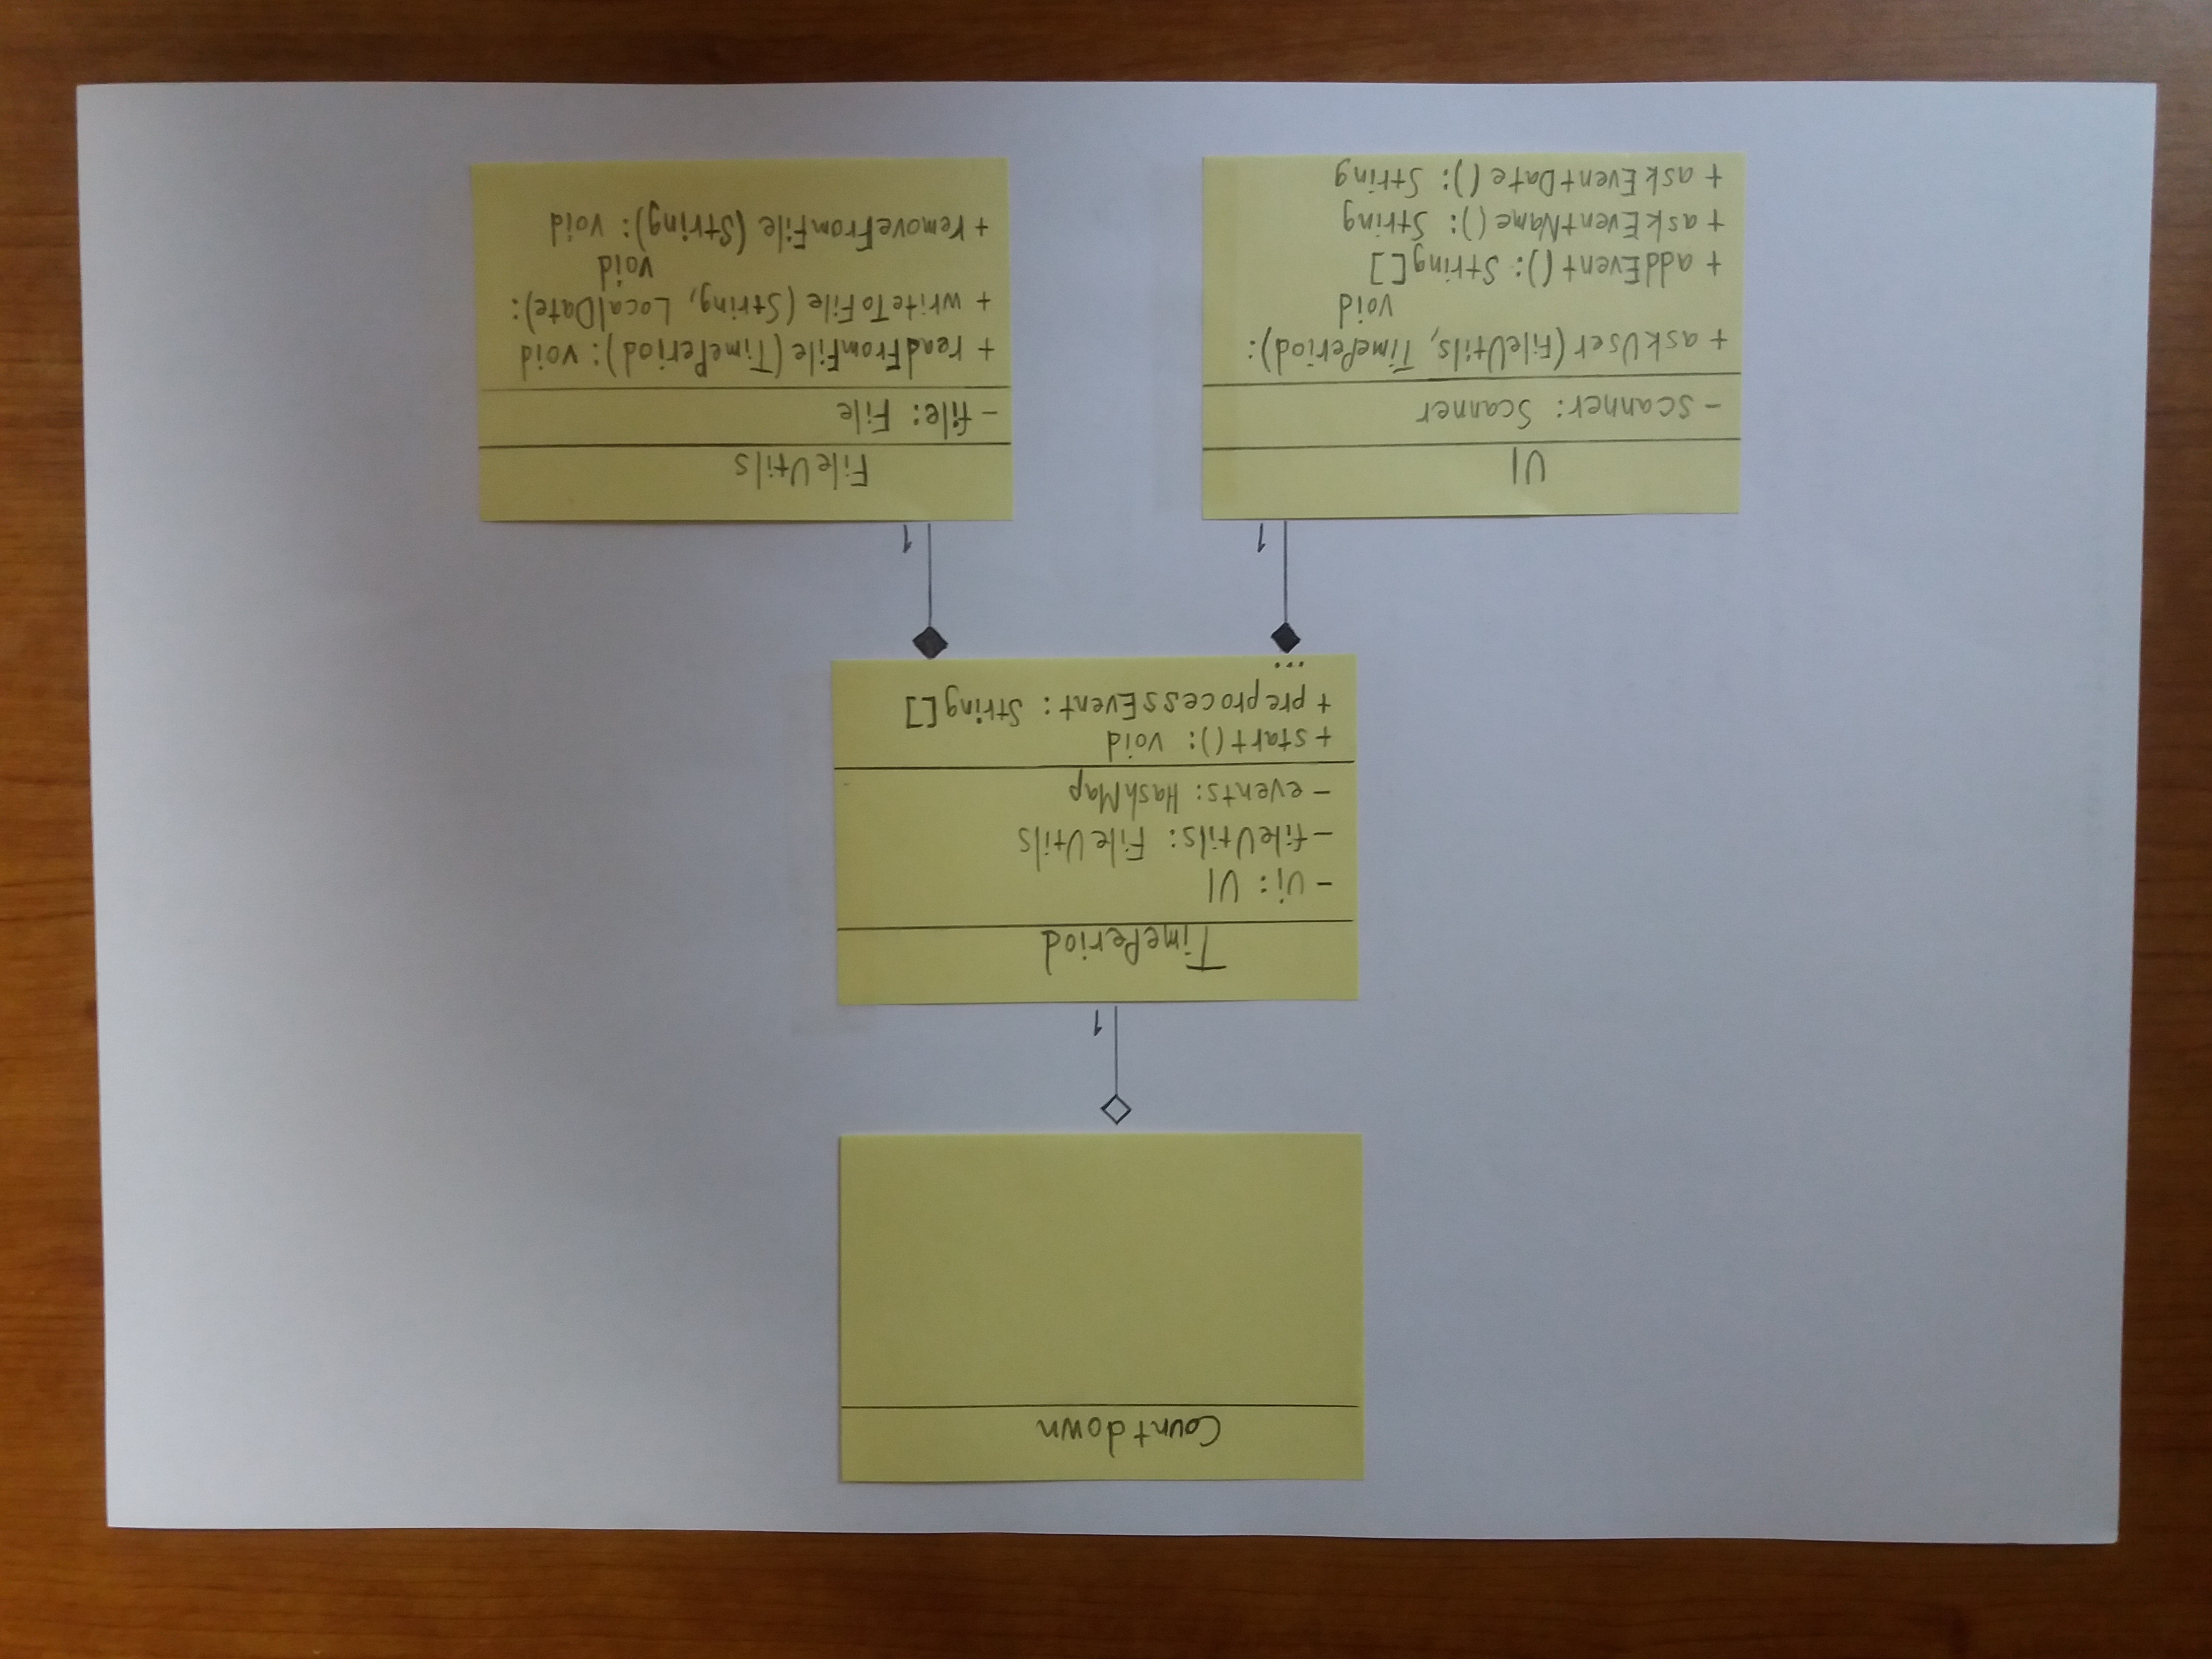 Countdown
1
TimePeriod
- ui: UI
- fileUtils: FileUtils
- events: HashMap
+ start(): void
+ preprocessEvent: String[]
...
1
1
UI
- scanner: Scanner
+ askUser(FileUtils, TimePeriod):
void
+ addEvent(): String[]
+ askEventName(): String
+ askEventDate(): String
FileUtils
- file: File
+ readFromFile(TimePeriod): void
+ writeToFile(String, LocalDate):
void
+ removeFromFile(String): void